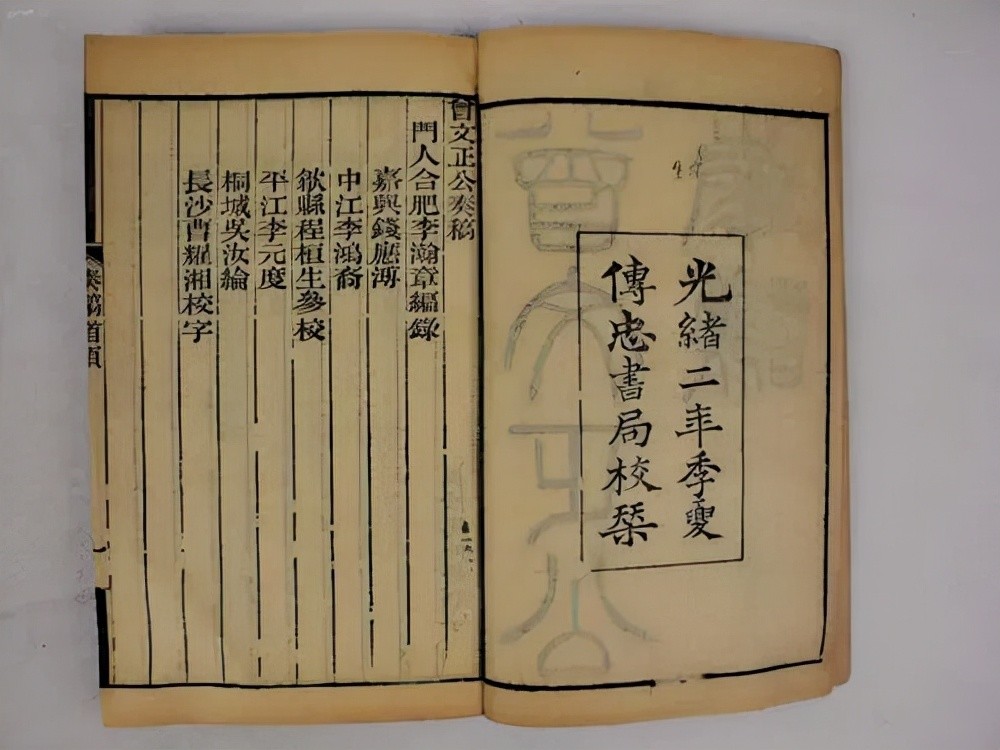 光緒二年季夏
傳忠書局校栞
曾文正公奏稿
門人合肥李瀚章編錄
嘉興錢應溥
中江李鴻裔
歙縣程桓生參校
平江李元度
桐城吳汝綸
長沙曹耀湘校字
奏稿首頁